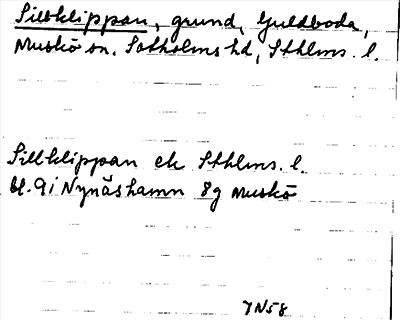 Sillklippan, grund, Guldboda,
Muskö sn. Sotholms hd, Sthlms. l.
Sillklippan ek Sthlms. l.
bl. 9i Nynäshamn 8g Muskö
JN58